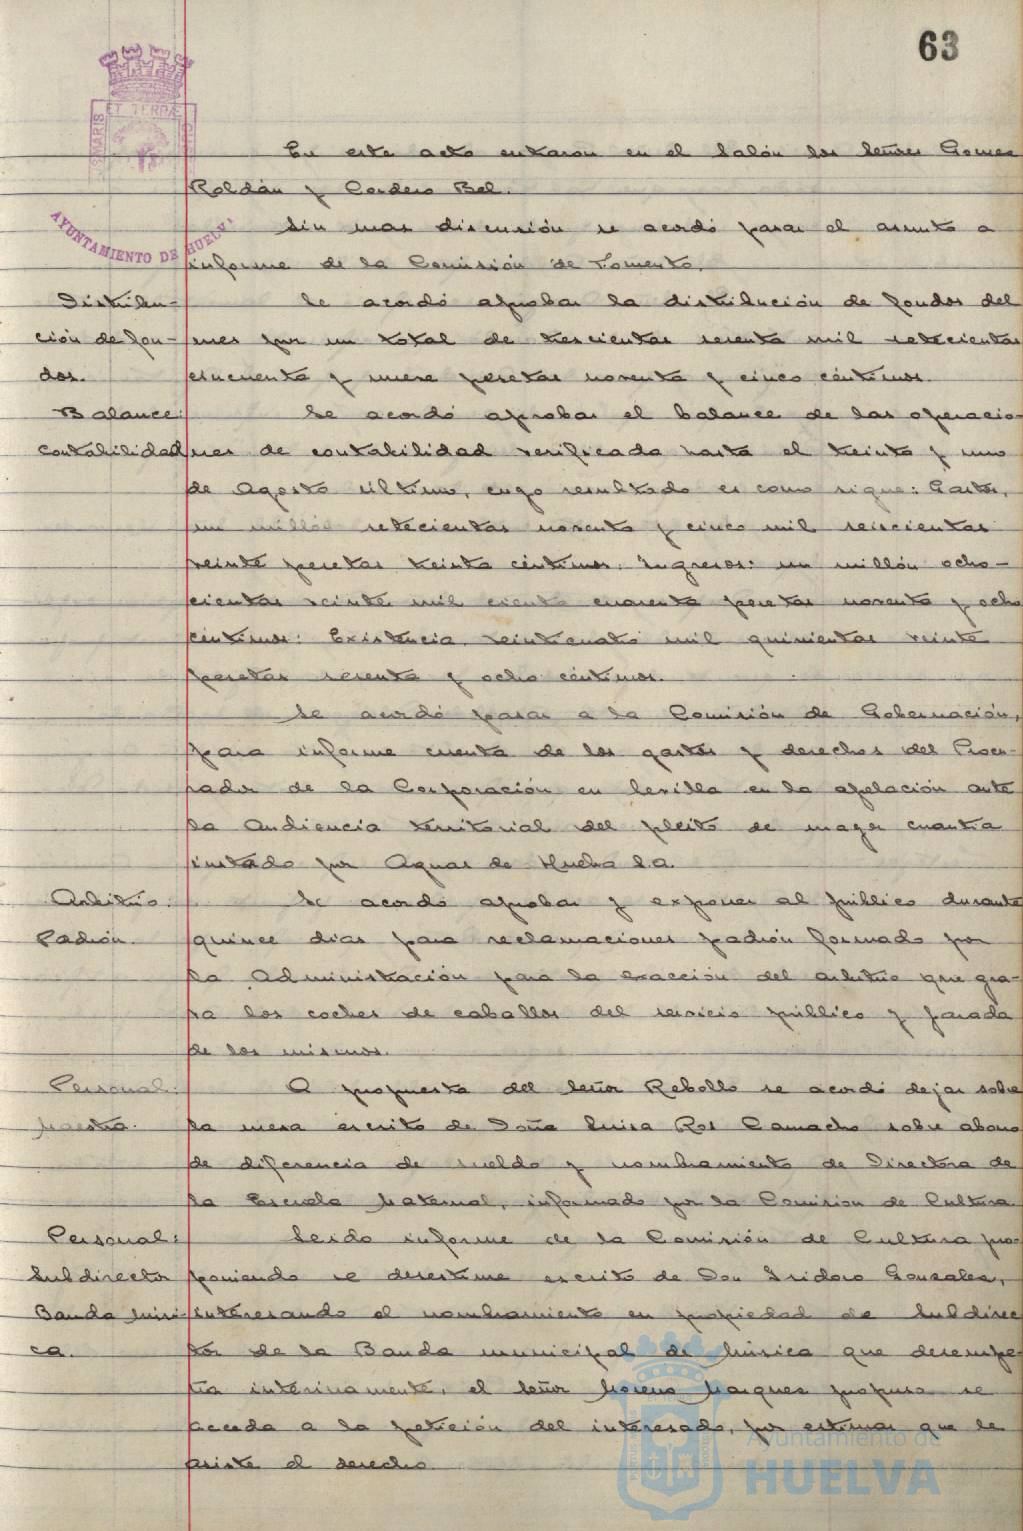 63
PORTUS MARIS ET TERRAE CUSTODIA
AYUNTAMIENTO DE HUELVA
En este acto entraron en el Salón los Señores Gomez
Roldán y Cordero Bel.
Sin mas discusión se acordó pasar el asunto a
informe de la Comisión de Fomento.
Distribu-
ción de fon-
dos.
Se acordó aprobar la distribución de fondos del
mes por un total de trescientas sesenta mil setecientas
cincuenta y nueve pesetas noventa y cinco céntimos.
Balance:
contabilidad
Se acordó aprobar el balance de las operacio-
nes de contabilidad verificada hasta el treinta y uno
de Agosto último, cuyo resultado es como sigue: Gastos,
un millón setecientas noventa y cinco mil seiscientas
veinte pesetas treinta céntimos. Ingresos: un millón ocho-
cientas veinte mil ciento cuarenta pesetas noventa y ocho
céntimos: Existencia, veinticuatro mil quinientas veinte
pesetas sesenta y ocho céntimos.
Se acordó pasar a la Comisión de Gobernación,
para informe cuenta de los gastos y derechos del Procu-
rador de la Corporación en Sevilla en la apelación ante
la Audiencia territorial del pleito de mayor cuantía
instado por Aguas de Huelva S.A.
Arbitrio.
Padrón.
Se acordó aprobar y exponer al público durante
quince dias para reclamaciones padrón formado por
la Administración para la exacción del arbitrio que gra-
va los coches de caballos del servicio público y parada
de los mismos.
Personal:
Maestra.
A propuesta del Señor Rebollo se acordó dejar sobre
la mesa escrito de Doña Luisa Ros Camacho sobre abono
de diferencia de sueldo y nombramiento de Directora de
la Escuela Maternal, informado por la Comision de Cultura
Personal:
Subdirector
Banda músi-
ca.
Leido informe de la Comisión de Cultura pro-
poniendo se desestime escrito de Don Isidoro Gonzalez,
interesando el nombramiento en propiedad de Subdirec
tor de la Banda municipal de Música que desempe-
ña interinamente, el Señor Moreno Marquez propuso se
acceda a la petición del interesado, por estimar que le
asiste el derecho.
Ayuntamiento de
HUELVA